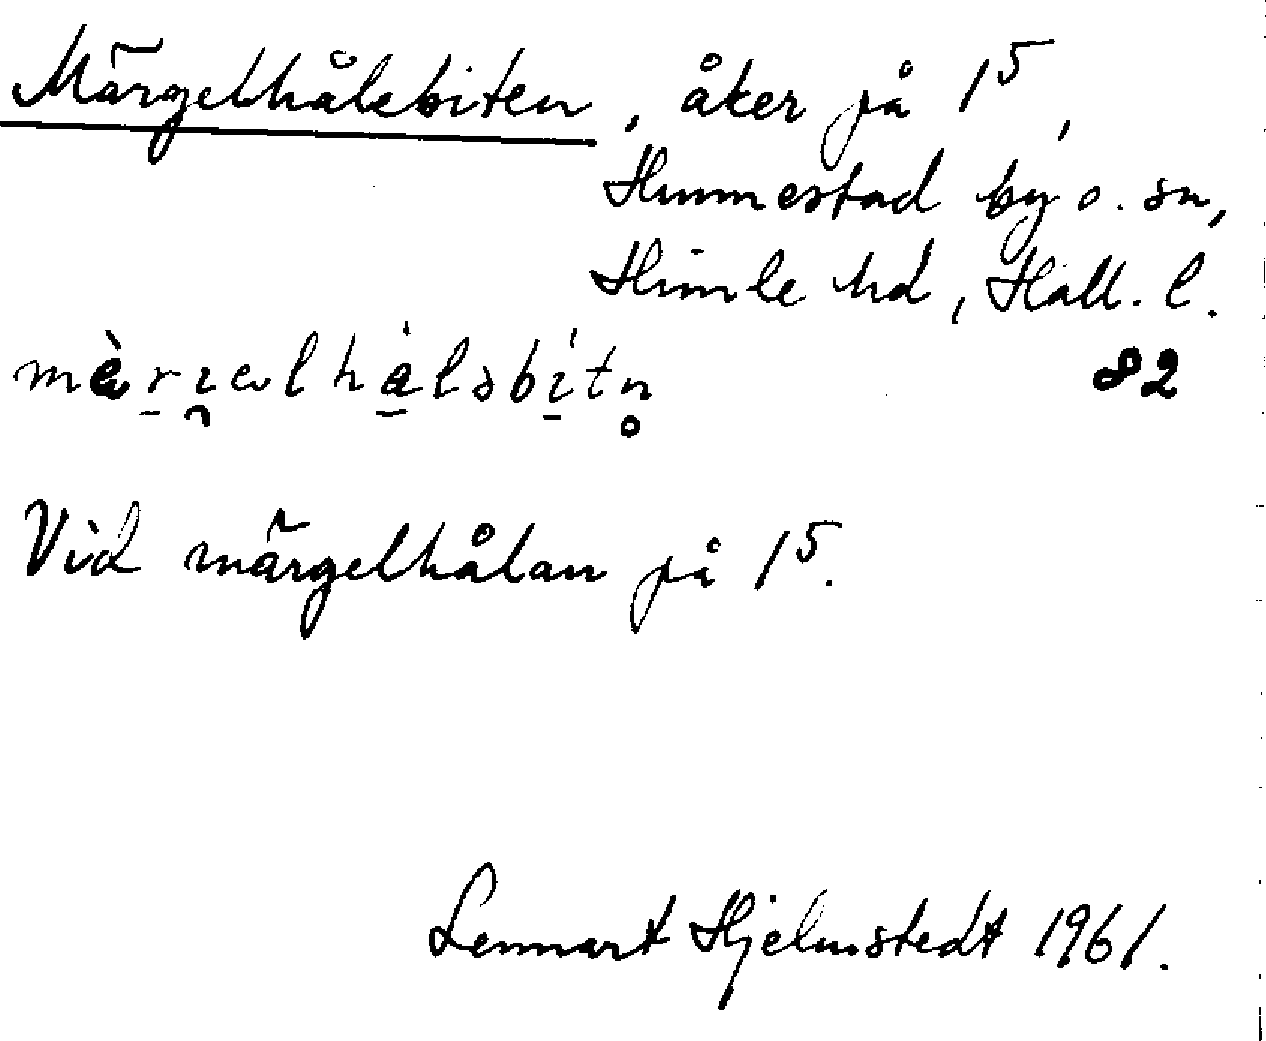 Märgelhålsbiten, åker på 1⁵,
Hunnestad by o. sn,
Himle hd, Hall. l.
mæ̀r̲ı̯əlhǻ̲lsbí̲tn̥ 82
Vid märgelhålan på 1⁵.
Lennart Hjelmstedt 1961.